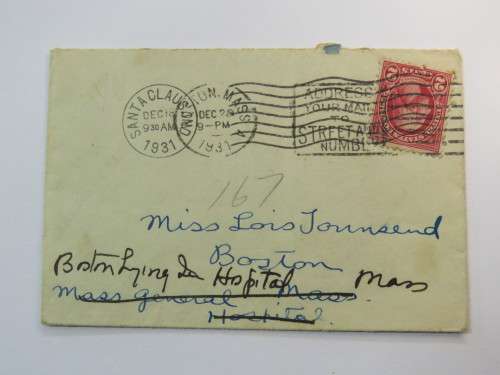 SANTA CLAUS IND
DEC
9 30 AM
1931
MASS
DEC 28
9-PM
1931
ADDRESS
YOUR MAIL
TO
STREET AND
NUMBER
167
Miss Lois Townsend
Boston
Boston Lying In Hospital Mass
Mass General Mass.
Hospital.